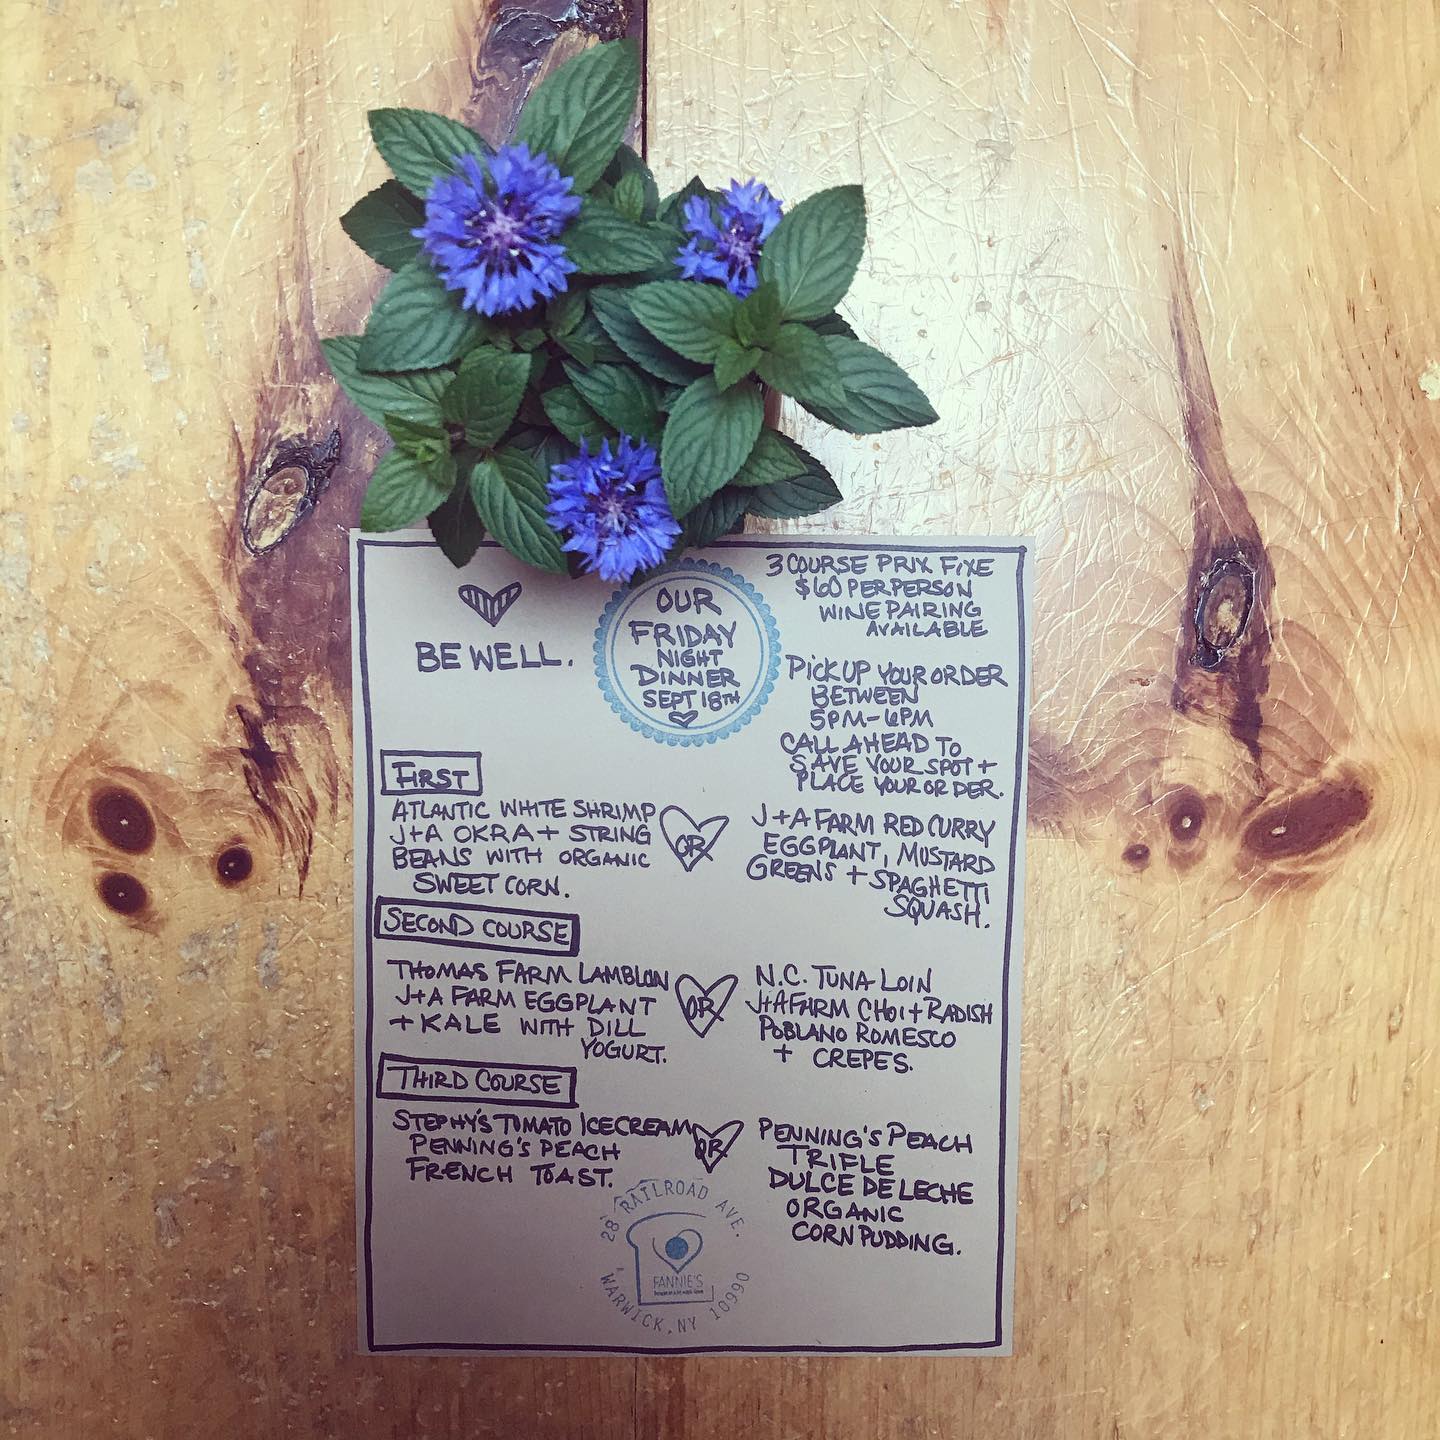 BE WELL.
OUR
FRIDAY
NIGHT
DINNER
SEPT 18TH
3 COURSE PRIX FIXE
$60 PER PERSON
WINE PAIRING
AVAILABLE
PICK UP YOUR ORDER
BETWEEN
5PM-6PM
CALL AHEAD TO
SAVE YOUR SPOT +
PLACE YOUR ORDER.
FIRST
ATLANTIC WHITE SHRIMP
J+A OKRA + STRING
BEANS WITH ORGANIC
SWEET CORN.
OR
J+A FARM RED CURRY
EGGPLANT, MUSTARD
GREENS + SPAGHETTI
SQUASH.
SECOND COURSE
THOMAS FARM LAMBLOIN
J+A FARM EGGPLANT
+ KALE WITH DILL
YOGURT.
OR
N.C. TUNA LOIN
J+A FARM CHOI + RADISH
POBLANO ROMESCO
+ CREPES.
THIRD COURSE
STEPHY'S TOMATO ICECREAM
PENNING'S PEACH
FRENCH TOAST.
OR
PENNING'S PEACH
TRIFLE
DULCE DE LECHE
ORGANIC
CORN PUDDING.
28 RAILROAD AVE.
FANNIE'S
WARWICK, NY 10990